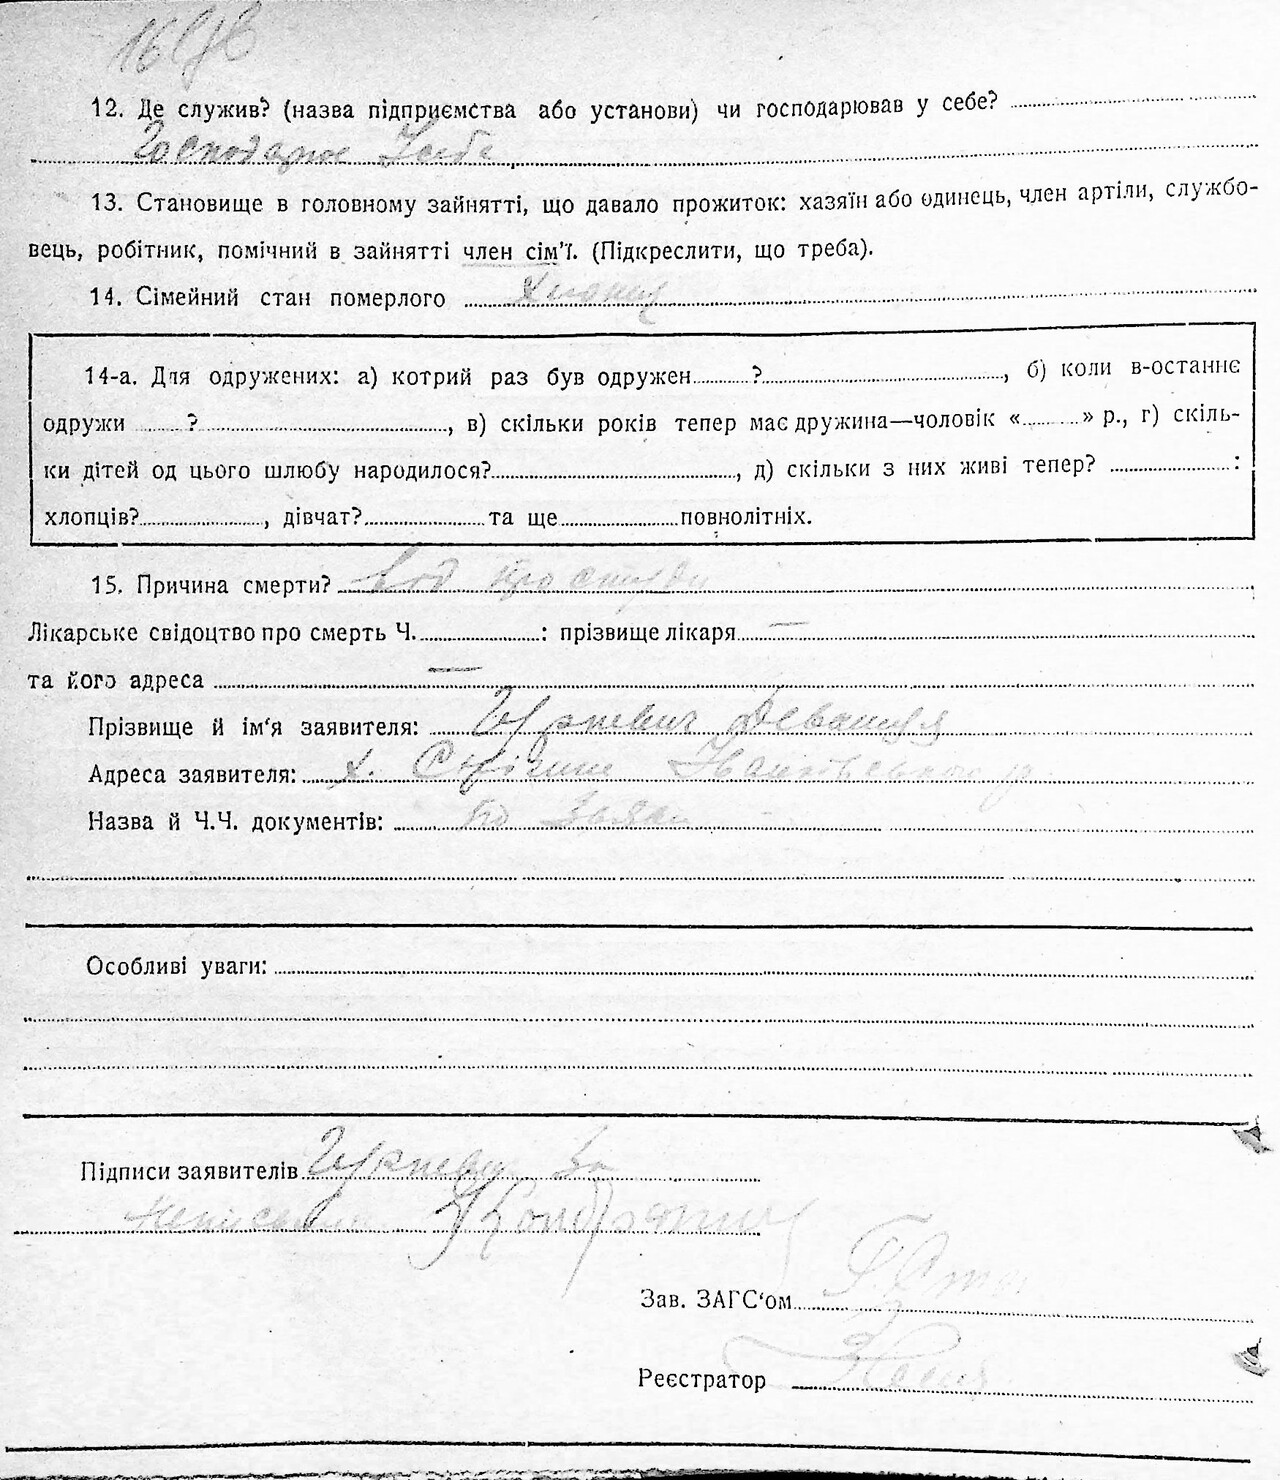 12. Де служив? (назва підприємства або установи) чи господарював у себе?
Господарює У себе
13. Становище в головному зайнятті, що давало прожиток: хазяїн або одинець, член артіли, службо-
вець, робітник, помічний в зайнятті член сім'ї. (Підкреслити, що треба).
14. Сімейний стан померлого
14-а. Для одружених: а) котрий раз був одружен ? , б) коли в-останнє
одружи ? , в) скільки років тепер має дружина—чоловік « » р., г) скіль-
ки дітей од цього шлюбу народилося? , д) скільки з них живі тепер? :
хлопців? , дівчат? та ще повнолітніх.
15. Причина смерти? від простуди
Лікарське свідоцтво про смерть Ч. : прізвище лікаря —
та його адреса —
Прізвище й ім'я заявителя:
Адреса заявителя: х.
Назва й Ч.Ч. документів: по
Особливі уваги:
Підписи заявителів за
Зав. ЗАГС'ом
Реєстратор